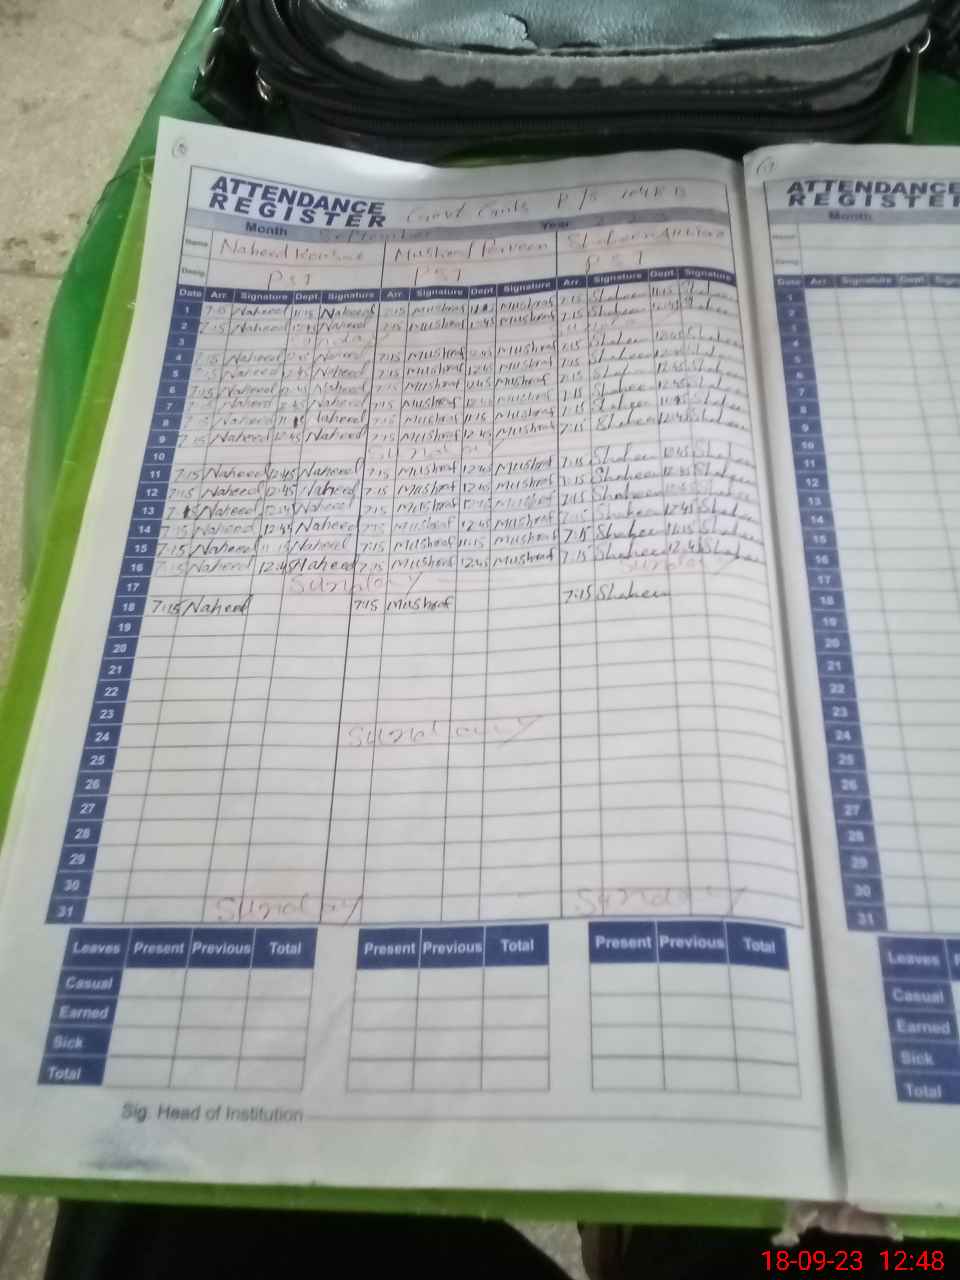 ATTENDANCE REGISTER Govt Girls P/S
ATTENDANCE REGISTER
Month September Year
Month
Name Naheed Kousar Musharaf Parveen Shaheen
Name
Desig. PST PST PST
Desig.
Date Arr. Signature Dept. Signature Arr. Signature Dept. Signature Arr. Signature Dept. Signature
Date Arr. Signature Dept
1 7:15 Naheed 11:15 Naheed 7:15 Musharaf Musharaf 7:15 Shaheen 11:15 Shaheen
2 7:15 Naheed 12:45 Naheed 7:15 Musharaf 12:45 Musharaf 7:15 Shaheen 12:45 Shaheen
3 Sunday
4 7:15 Naheed 12:45 Naheed 7:15 Musharaf 12:45 Musharaf 7:15 Shaheen 12:45 Shaheen
5 7:15 Naheed 12:45 Naheed 7:15 Musharaf 12:45 Musharaf 7:15 Shaheen 12:45 Shaheen
6 7:15 Naheed 12:45 Naheed 7:15 Musharaf 12:45 Musharaf 7:15 Shaheen 12:45 Shaheen
7 7:15 Naheed 12:45 Naheed 7:15 Musharaf 12:45 Musharaf 7:15 Shaheen 12:45 Shaheen
8 7:15 Naheed 11:15 Naheed 7:15 Musharaf 11:15 Musharaf 7:15 Shaheen 11:15 Shaheen
9 7:15 Naheed 12:45 Naheed 7:15 Musharaf 12:45 Musharaf 7:15 Shaheen 12:45 Shaheen
10 Sunday
11 7:15 Naheed 12:45 Naheed 7:15 Musharaf 12:45 Musharaf 7:15 Shaheen 12:45 Shaheen
12 7:15 Naheed 12:45 Naheed 7:15 Musharaf 12:45 Musharaf 7:15 Shaheen 12:45 Shaheen
13 7:15 Naheed 12:45 Naheed 7:15 Musharaf 12:45 Musharaf 7:15 Shaheen 12:45 Shaheen
14 7:15 Naheed 12:45 Naheed 7:15 Musharaf 12:45 Musharaf 7:15 Shaheen 12:45 Shaheen
15 7:15 Naheed 11:15 Naheed 7:15 Musharaf 11:15 Musharaf 7:15 Shaheen 11:15 Shaheen
16 7:15 Naheed 12:45 Naheed 7:15 Musharaf 12:45 Musharaf 7:15 Shaheen 12:45 Shaheen
17 Sunday Sunday
18 7:15 Naheed 7:15 Musharaf 7:15 Shaheen
19
20
21
22
23
24 Sunday
25
26
27
28
29
30
31 Sunday Sunday
1
2
3
4
5
6
7
8
9
10
11
12
13
14
15
16
17
18
19
20
21
22
23
24
25
26
27
28
29
30
31
Leaves Present Previous Total Present Previous Total Present Previous Total
Casual
Earned
Sick
Total
Leaves
Casual
Earned
Sick
Total
Sig. Head of Institution
18-09-23 12:48